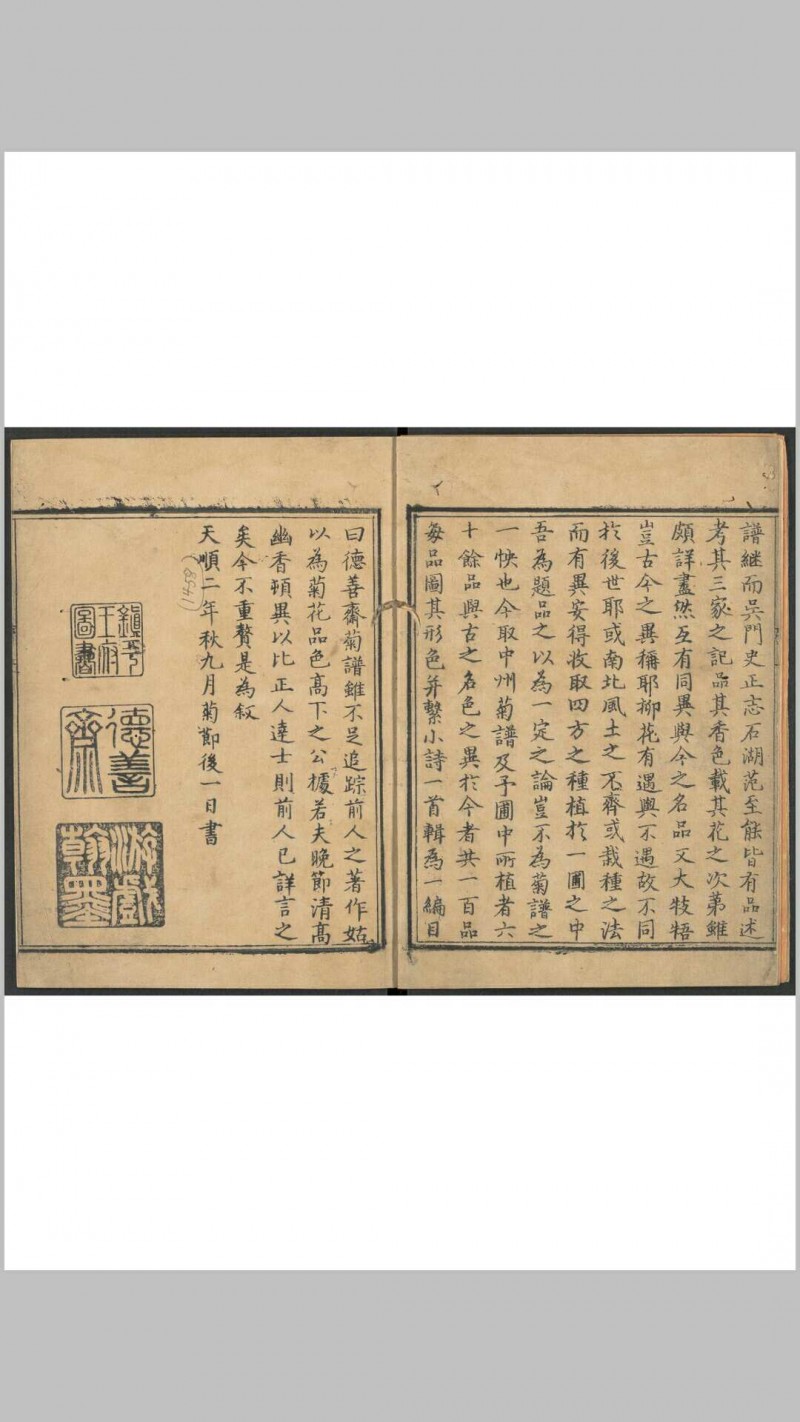 譜継而吳門史正志石湖范至能皆有品述
考其三家之記品其香色載其花之次第雖
頗詳盡然互有同異與今之名品又大牴牾
豈古今之異稱耶抑花有遇與不遇故不同
扵後世耶或南北風土之不齊或栽種之法
而有異安得收取四方之種植扵一圃之中
吾為題品之以為一定之論豈不為菊譜之
一快也今取中州菊譜及予圃中所植者六
十餘品與古之名色之異扵今者共一百品
每品圖其形色并繫小詩一首輯為一編目
曰德善齋菊譜雖不足追踪前人之著作姑
以為菊花品色高下之公據若夫晚節清高
幽香頓異以比正人達士則前人已詳言之
矣今不重贅是為叙
天順二年秋九月菊節後一日書
(1458)
鎮平王府圖書
德善齋
游戲翰墨